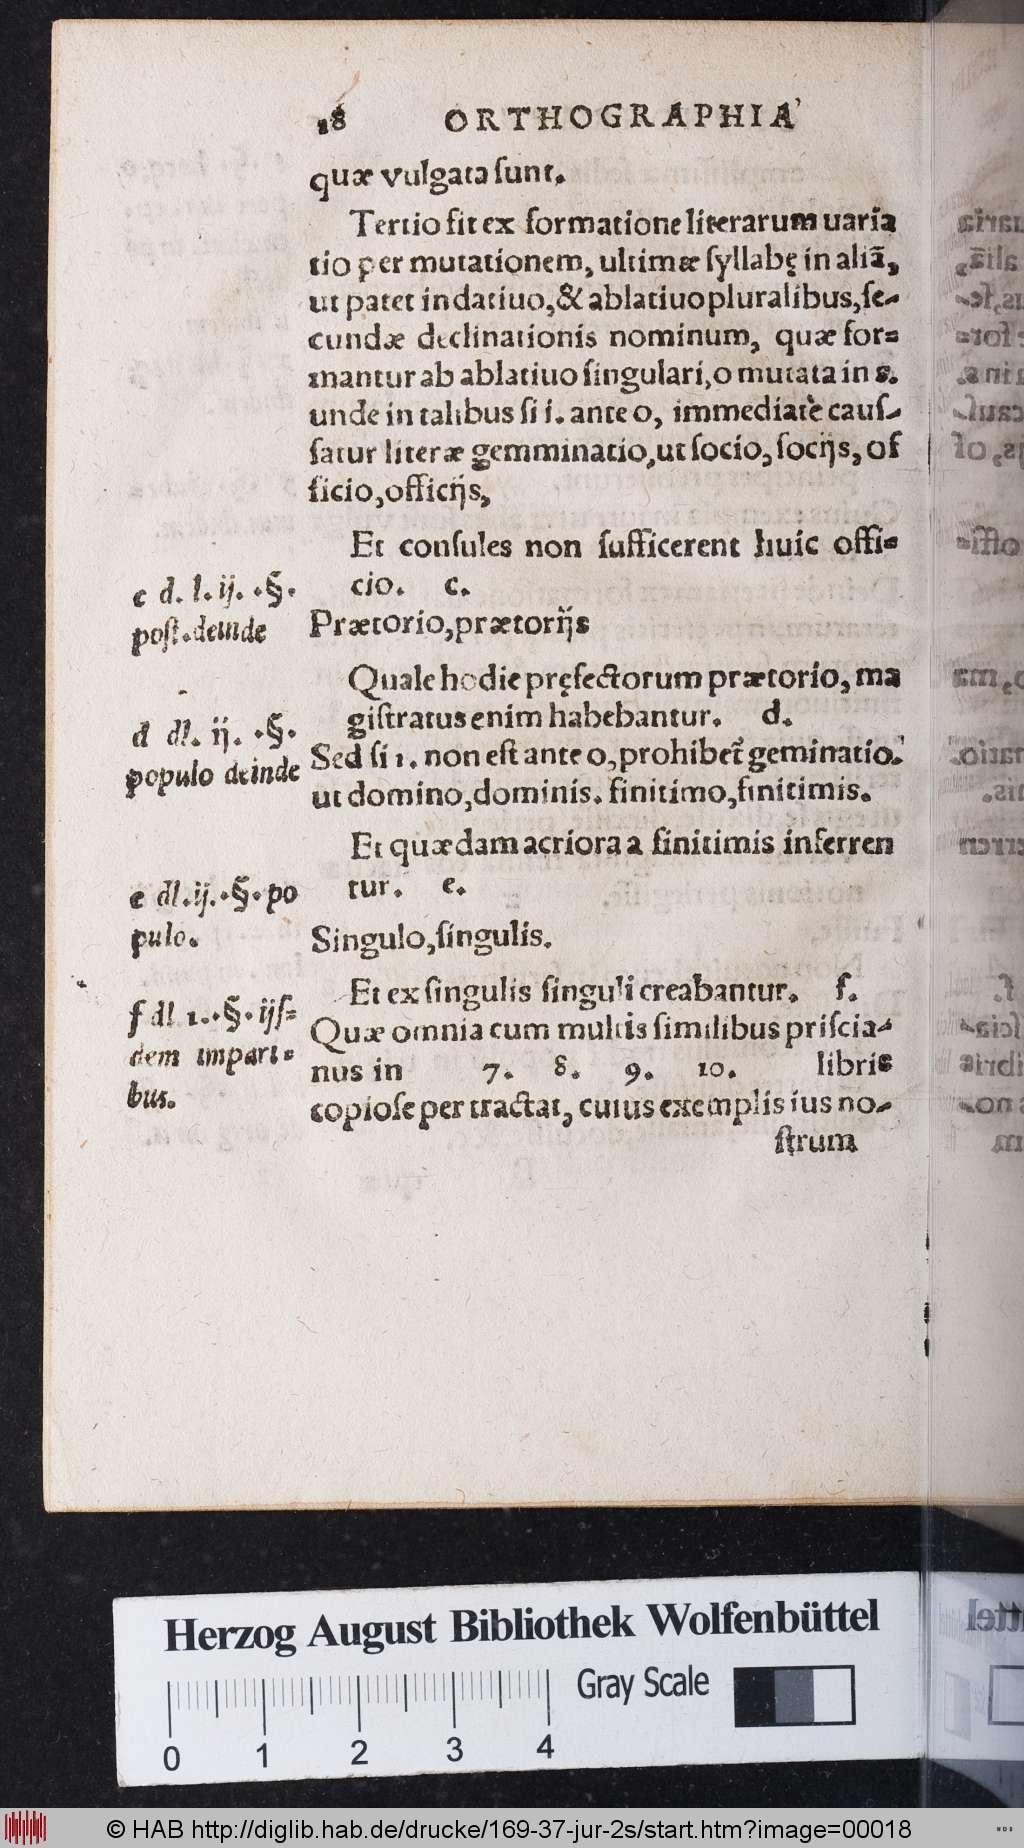 18 ORTHOGRAPHIA
quæ vulgata sunt.
Tertio fit ex formatione literarum uaria
tio per mutationem, ultimæ syllabę in aliā,
ut patet in datiuo, & ablatiuo pluralibus, se-
cundæ declinationis nominum, quæ for=
mantur ab ablatiuo singulari, o mutata in s.
unde in talibus si i. ante o, immediatè caus-
satur literæ gemminatio, ut socio, socijs, of
ficio, officijs,
Et consules non sufficerent huic offi=
cio. c.
c d. l. ij. .§.
post. deinde
Prætorio, prætorijs
Quale hodie pręfectorum prætorio, ma
gistratus enim habebantur. d.
d dl. ij. .§.
populo deinde
Sed si i. non est ante o, prohibet̃ geminatio.
ut domino, dominis. finitimo, finitimis.
Et quædam acriora a finitimis inferren
tur. e.
e dl. ij. .§. po
pulo.
Singulo, singulis.
Et ex singulis singuli creabantur. f.
f dl 1. .§. ijs=
dem impari=
bus.
Quæ omnia cum multis similibus priscia-
nus in 7. 8. 9. 10. libris
copiose per tractat, cuius exemplis ius no-
strum
Herzog August Bibliothek Wolfenbüttel
Gray Scale
0 1 2 3 4
© HAB http://diglib.hab.de/drucke/169-37-jur-2s/start.htm?image=00018